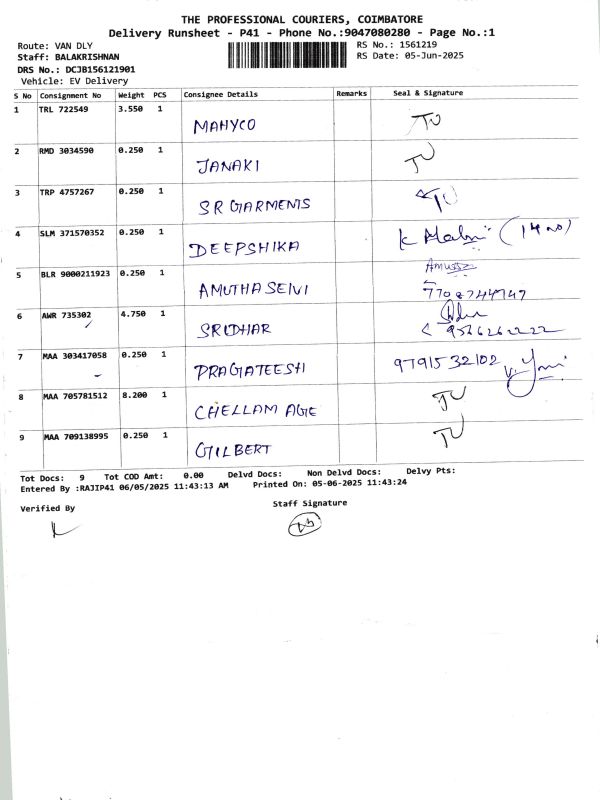 THE PROFESSIONAL COURIERS, COIMBATORE
Delivery Runsheet - P41 - Phone No.:9047080280 - Page No.:1
Route: VAN DLY
RS No.: 1561219
Staff: BALAKRISHNAN
RS Date: 05-Jun-2025
DRS No.: DCJB156121901
Vehicle: EV Delivery
S No Consignment No Weight PCS Consignee Details Remarks Seal & Signature
1 TRL 722549 3.550 1 MAHYCO
2 RMD 3034590 0.250 1 JANAKI
3 TRP 4757267 0.250 1 SR GARMENTS
4 SLM 371570352 0.250 1 DEEPSHIKA
5 BLR 9000211923 0.250 1 AMUTHA SELVI 7708744749
6 AWR 735302 4.750 1 SRIDHAR 9566262222
7 MAA 303417058 0.250 1 PRAGATEESH 9791532102
8 MAA 705781512 8.200 1 CHELLAM AGE
9 MAA 709138995 0.250 1 GILBERT
Tot Docs: 9 Tot COD Amt: 0.00 Delvd Docs: Non Delvd Docs: Delvy Pts:
Entered By :RAJIP41 06/05/2025 11:43:13 AM Printed On: 05-06-2025 11:43:24
Verified By
Staff Signature